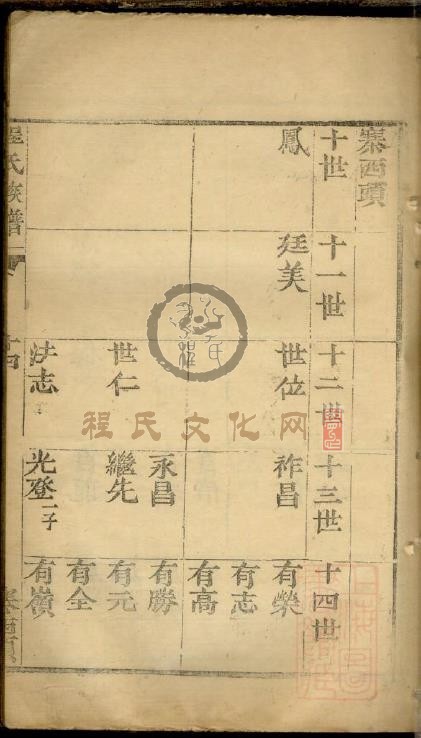 寨西頭
十世 十一世 十二世 十三世 十四世
鳳 廷美 世位 祚昌 有榮
有志
有高
永昌 有勝
世仁 繼先 有元
有全
法志 光登 一子 有嶺
程氏族譜
十四
寨西頭
程氏文化网